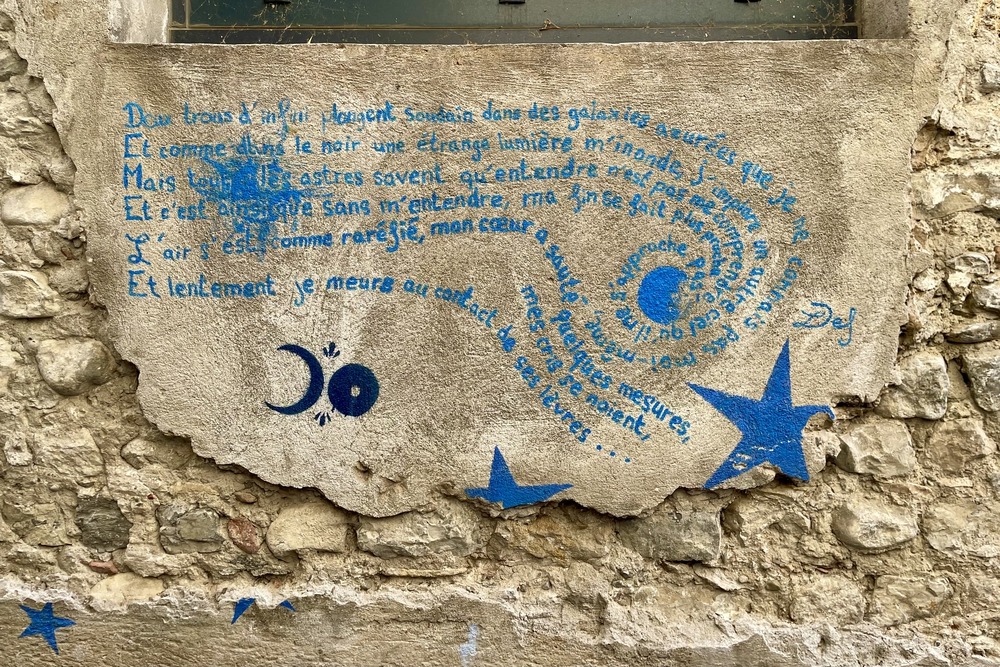 Deux trous d'infini plongent soudain dans des galaxies azurées que je ne connais pas moi-même,
Et comme dans le noir une étrange lumière m'inonde, j'aspire un autre ciel
Mais tous les astres savent qu'entendre n'est pas me comprendre
Et c'est ainsi que sans m'entendre, ma fin se fait plus grande s'approche pas
L'air s'est comme raréfié, mon cœur a sauté quelques mesures,
mes cris se noient,
Et lentement je meurs au contact de ses lèvres...